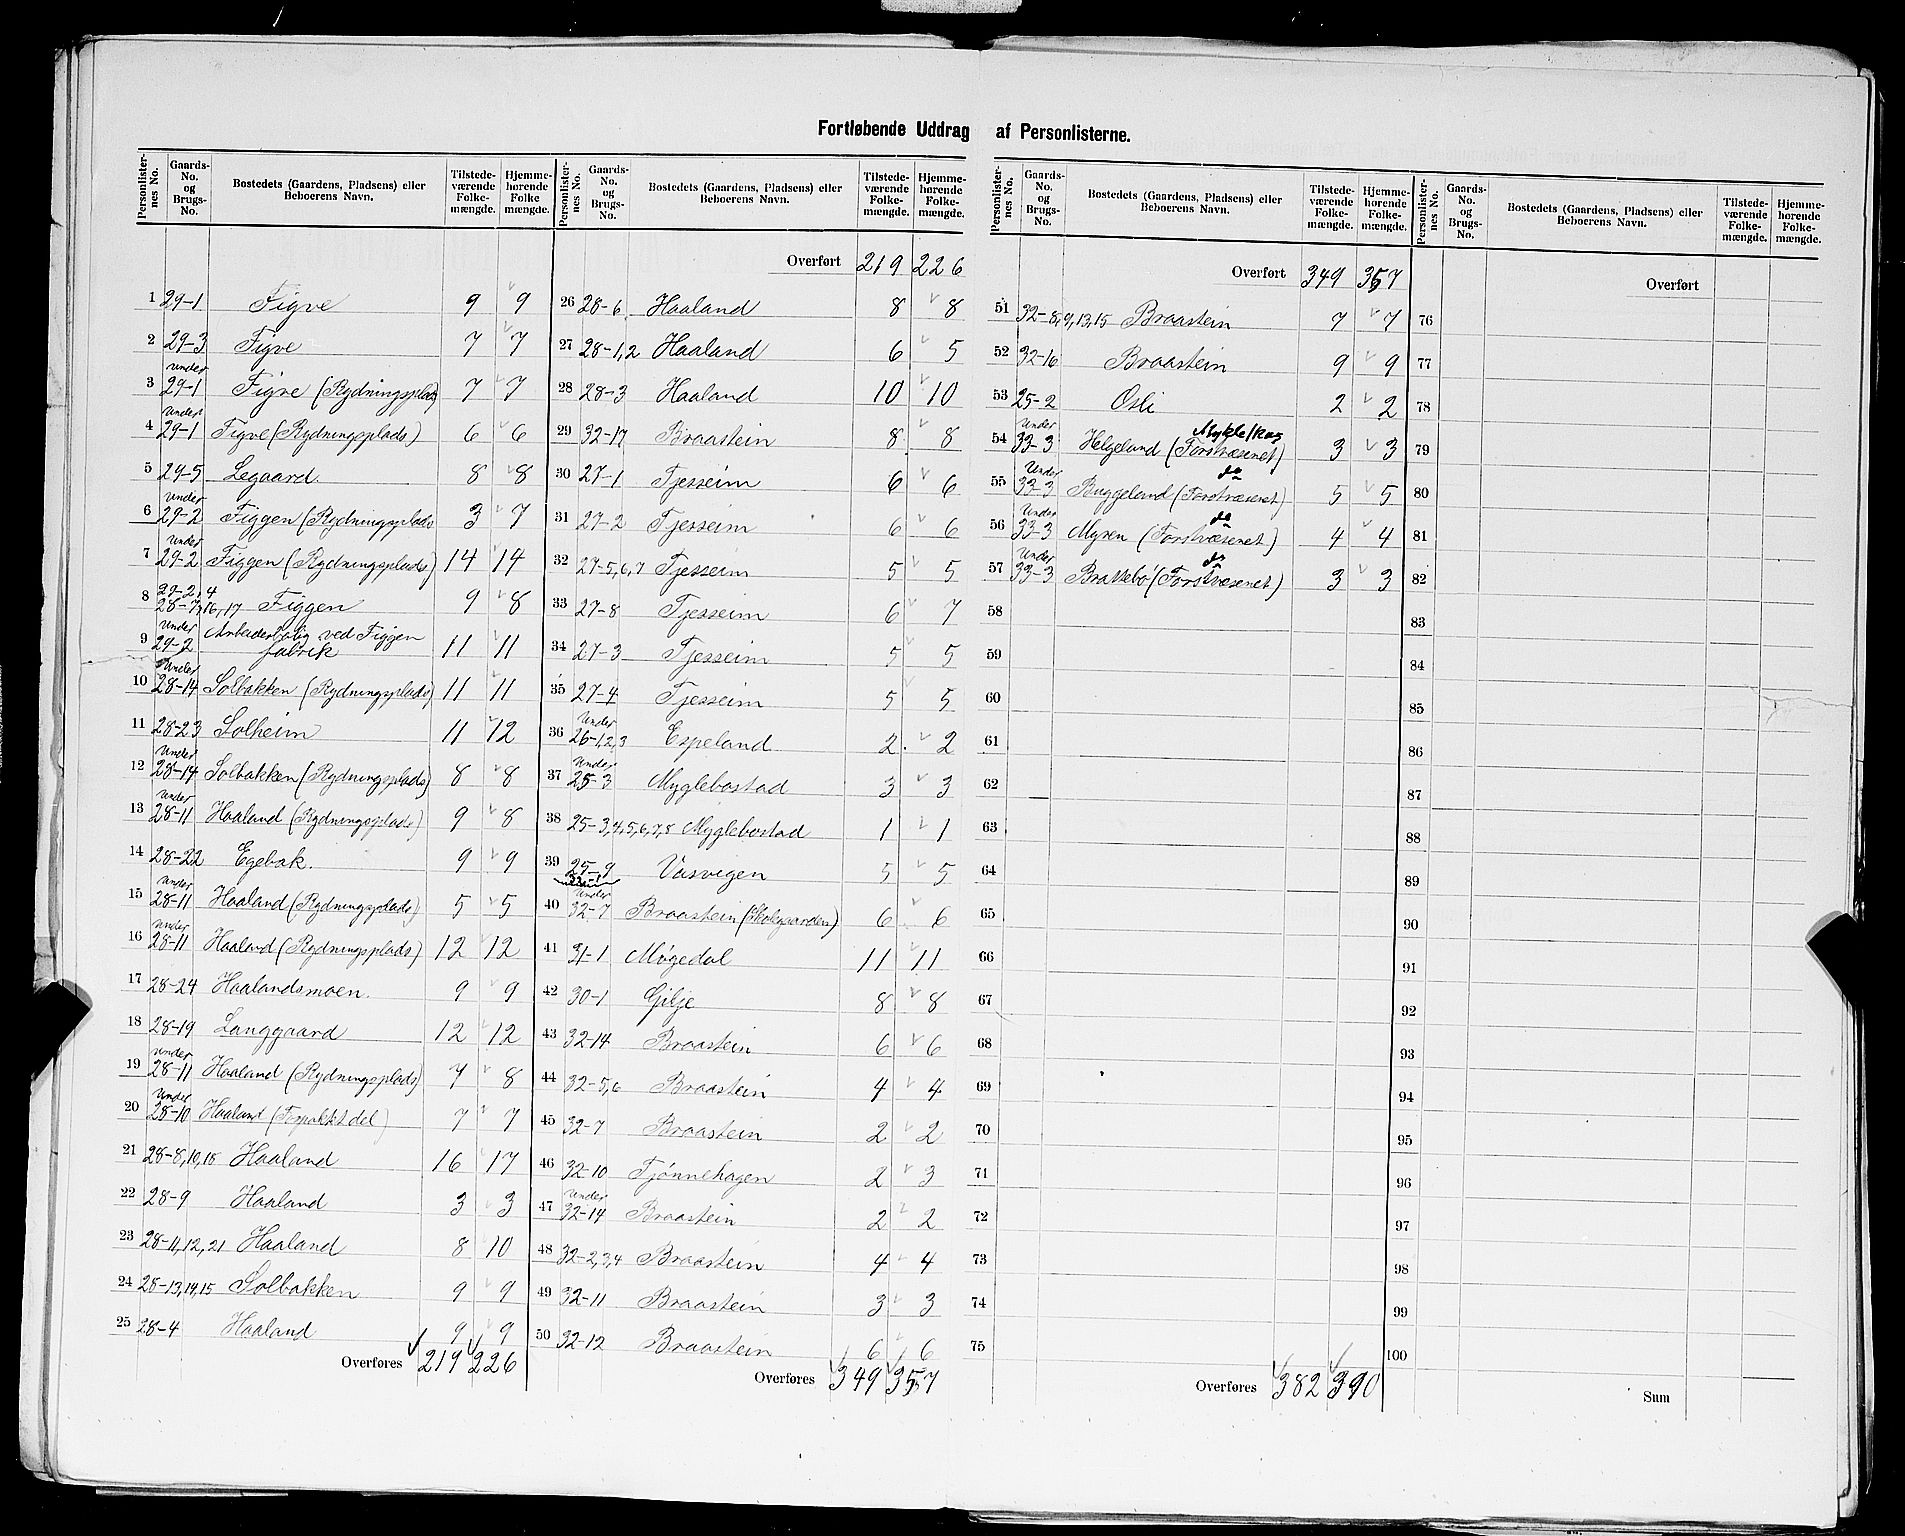 Fortløbende Uddrag af Personlisterne.
Personlister-nes No. | Gaards-No. og Brugs-No. | Bostedets (Gaardens, Pladsens) eller Beboerens Navn. | Tilstede-værende Folke-mængde. | Hjemme-hørende Folke mængde.
1 29-1 Figve 9 9
2 29-3 Figve 7 7
3 under 29-1 Figve (Rydningsplads) 7 7
4 under 29-1 Figve (Rydningsplads) 6 6
5 29-5 Legaard 8 8
6 under 29-2 Figgen (Rydningsplads 3 7
7 under 29-2 Figgen (Rydningsplads) 14 14
8 29-2,4 28-7,16,17 Figgen 9 8
9 under 29-2 Arbeiderbolig ved Figgen fabrik 11 11
10 under 28-14 Solbakken (Rydningsplads) 11 11
11 28-23 Solheim 11 12
12 under 28-14 Solbakken (Rydningsplads) 8 8
13 under 28-11 Haaland (Rydningsplads) 9 8
14 28-22 Egebak. 9 9
15 under 28-11 Haaland (Rydningsplads) 5 5
16 under 28-11 Haaland (Rydningsplads) 12 12
17 28-24 Haalandsmoen. 9 9
18 28-19 Langgaard 12 12
19 under 28-11 Haaland (Rydningsplads) 7 8
20 under 28-10 Haaland (Forpaktet del) 7 7
21 28-8,10,18 Haaland 16 17
22 28-9 Haaland 3 3
23 28-11,12,21 Haaland 8 10
24 28-13,14,15 Solbakken 9 9
25 28-4 Haaland 9 9
Overføres 219 226
Personlister-nes No. | Gaards-No. og Brugs-No. | Bostedets (Gaardens, Pladsens) eller Beboerens Navn. | Tilstede-værende Folke-mængde. | Hjemme-hørende Folke-mængde.
Overført 219 226
26 28-6 Haaland 8 8
27 28-1,2 Haaland 6 5
28 28-3 Haaland 10 10
29 32-17 Braastein 8 8
30 27-1 Tjesseim 6 6
31 27-2 Tjesseim 6 6
32 27-5,6,7 Tjesseim 5 5
33 27-8 Tjesseim 6 7
34 27-3 Tjesseim 5 5
35 27-4 Tjesseim 5 5
36 Under 26-1,2,3 Espeland 2 2
37 Under 25-3 Myglebostad 3 3
38 25-3,4,5,6,7,8 Myglebostad 1 1
39 25-9 Vasvigen 5 5
40 Under 32-7 Braastein (Skolegaarden) 6 6
41 31-1 Møgedal 11 11
42 30-1 Gilje 8 8
43 32-14 Braastein 6 6
44 32-5,6 Braastein 4 4
45 32-7 Braastein 2 2
46 32-10 Tjønnehagen 2 3
47 Under 32-14 Braastein 2 2
48 32-2,3,4 Braastein 4 4
49 32-11 Braastein 3 3
50 32-12 Braastein 6 6
Overføres 349 357
Personlister-nes No. | Gaards-No. og Brugs-No. | Bostedets (Gaardens, Pladsens) eller Beboerens Navn. | Tilstede-værende Folke-mængde. | Hjemme-hørende Folke-mængde.
Overført 349 357
51 32-8,9,13,15 Braastein 7 7
52 32-16 Braastein 9 9
53 25-2 Osli 2 2
54 Under 33-3 Helgeland (Forstvæsenet) 3 3
55 Under 33-3 Buggeland (Forstvæsenet) do 5 5
56 Under 33-3 Myren (Forstvæsenet) do 4 4
57 Under 33-3 Brattebø (Forstvæsenet) do 3 3
58
59
60
61
62
63
64
65
66
67
68
69
70
71
72
73
74
75
Overføres 382 390
Personlister-nes No. | Gaards-No. og Brugs-No. | Bostedets (Gaardens, Pladsens) eller Beboerens Navn. | Tilstede-værende Folke-mængde. | Hjemme-hørende Folke-mængde.
Overført
76
77
78
79
80
81
82
83
84
85
86
87
88
89
90
91
92
93
94
95
96
97
98
99
100
Sum